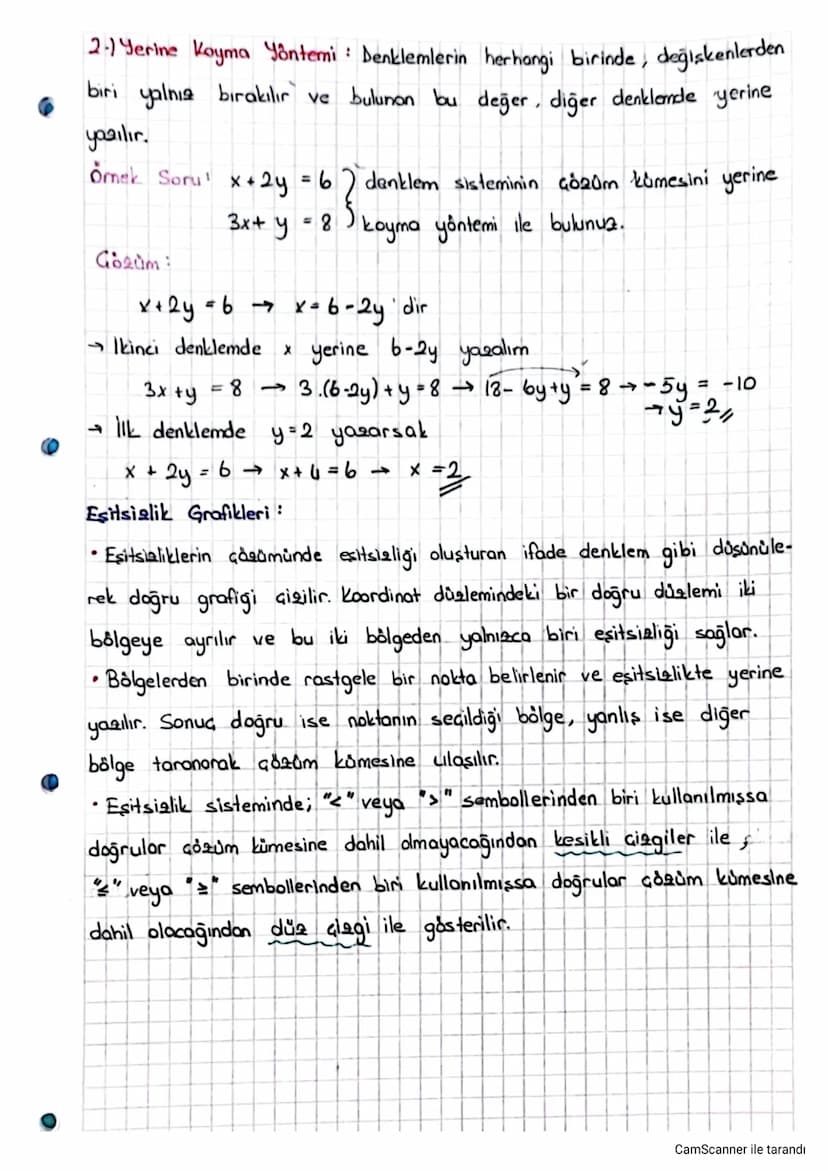 2-) Yerine Koyma Yöntemi : Denklemlerin herhangi birinde, değişkenlerden
biri yalnız bırakılır ve bulunan bu değer, diğer denklemde yerine
yazılır.
Örnek Soru: x + 2y = 6 } denklem sisteminin çözüm kümesini yerine
3x + y = 8 } koyma yöntemi ile bulunuz.
Çözüm :
x + 2y = 6 → x = 6 - 2y 'dir
→ İkinci denklemde x yerine 6-2y yazalım
3x + y = 8 → 3.(6-2y) + y = 8 → 18 - 6y + y = 8 → -5y = -10
→ y = 2 //
→ İlk denklemde y=2 yazarsak
x + 2y = 6 → x + 4 = 6 → x = 2
Eşitsizlik Grafikleri :
• Eşitsizliklerin çözümünde eşitsizliği oluşturan ifade denklem gibi düşünüle-
rek doğru grafiği çizilir. Koordinat düzlemindeki bir doğru düzlemi iki
bölgeye ayrılır ve bu iki bölgeden yalnızca biri eşitsizliği sağlar.
• Bölgelerden birinde rastgele bir nokta belirlenir ve eşitsizlikte yerine
yazılır. Sonuç doğru ise noktanın seçildiği bölge, yanlış ise diğer
bölge taranarak çözüm kümesine ulaşılır.
• Eşitsizlik sisteminde; "<" veya ">" sembollerinden biri kullanılmışsa
doğrular çözüm kümesine dahil olmayacağından kesikli çizgiler ile ;
"≤" veya "≥" sembollerinden biri kullanılmışsa doğrular çözüm kümesine
dahil olacağından düz çizgi ile gösterilir.
CamScanner ile tarandı